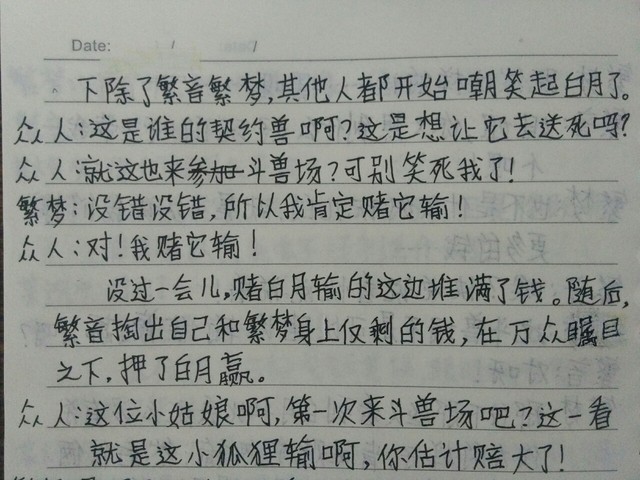 Date: / /
下除了繁音繁梦,其他人都开始嘲笑起白月了。
众人:这是谁的契约兽啊?这是想让它去送死吗?
众人:就这也来参加斗兽场?可别笑死我了!
繁梦:没错没错,所以我肯定赌它输!
众人:对!我赌它输!
没过一会儿,赌白月输的这边堆满了钱。随后,
繁音掏出自己和繁梦身上仅剩的钱,在万众瞩目
之下,押了白月赢。
众人:这位小姑娘啊,第一次来斗兽场吧?这一看
就是这小狐狸输啊,你估计赔大了!